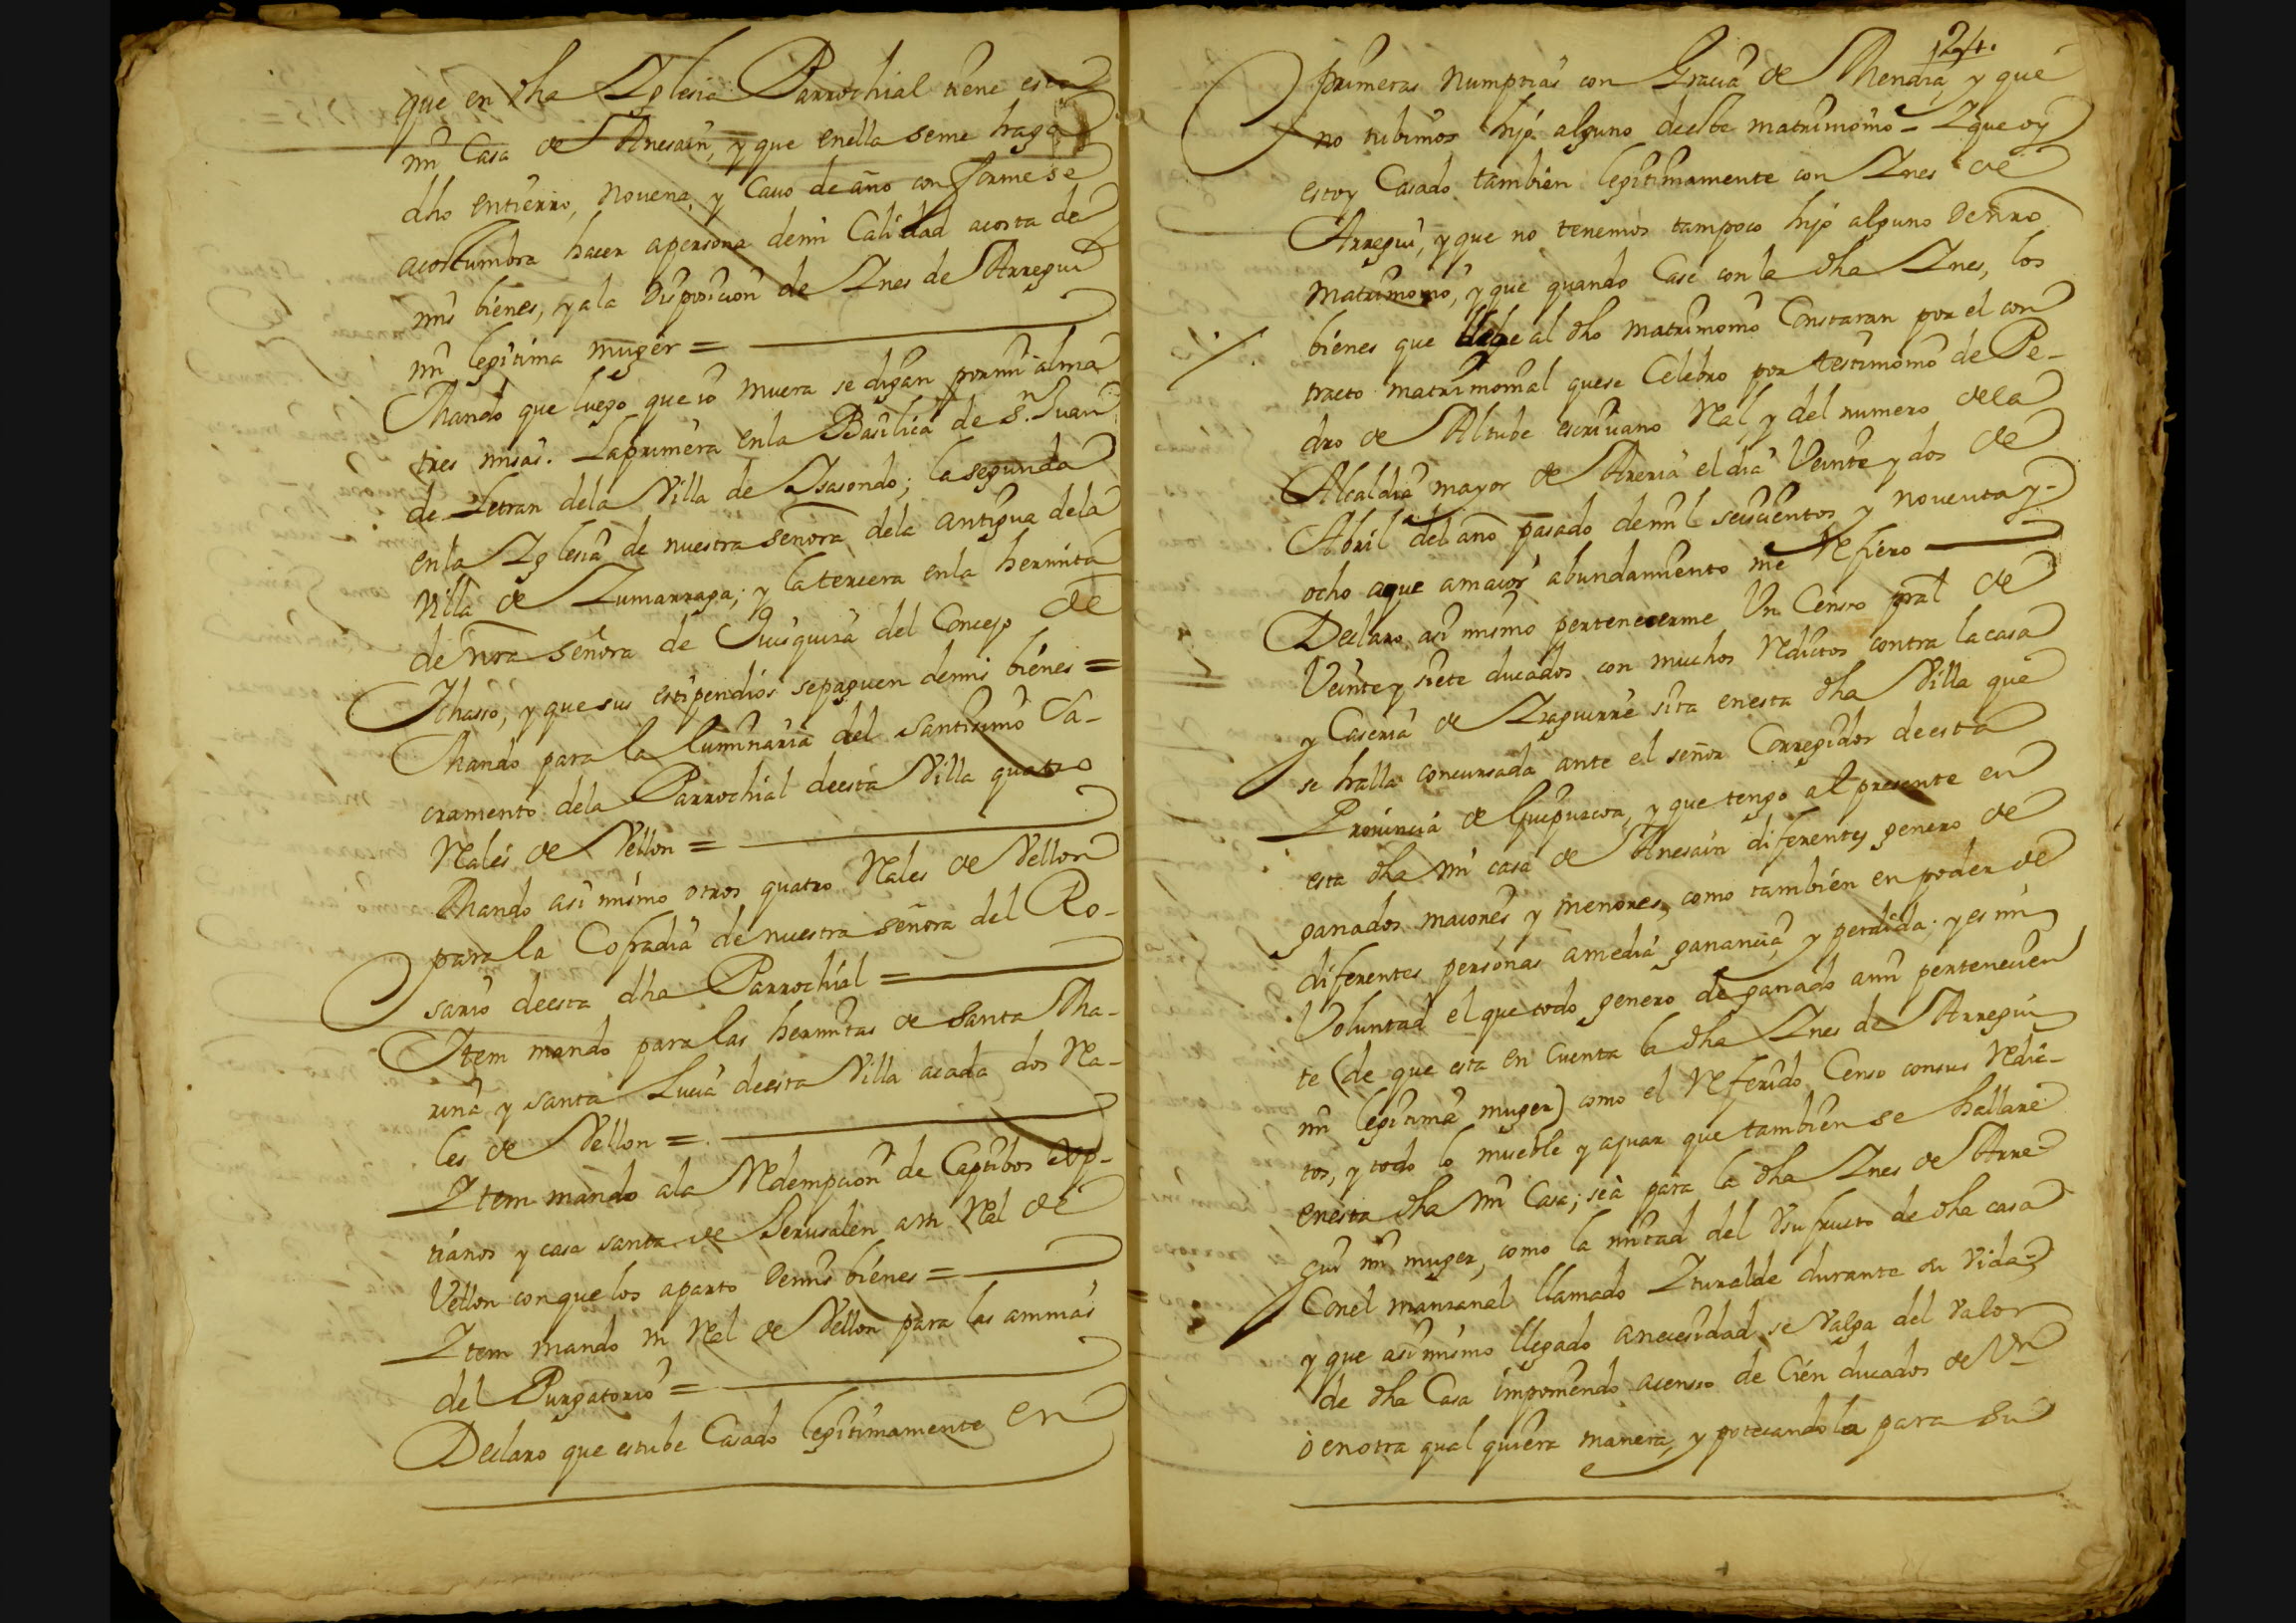 que en dha Yglesia Parrochial tiene esta
mi Casa de Anesain, y que enella seme haga
dho entierro, novena, y Cavo de año conforme se
acostumbra hacer apersona demi Calidad acosta de
mis bienes, y ala Disposicion de Ynes de Arregui
mi legitima muger =
Mando que luego que io muera se digan por mi alma
tres misas. Laprimera enla Basilica de Sn. Juan
de Letran dela Villa de Isasondo; la segunda
enla Yglesia de nuestra señora dela antigua dela
Villa de Zumarraga; y latercera enla hermita
de nra señora de Quisquiza del Concejo de
Ychasso, y que sus estipendios sepaguen demis bienes =
Mando para la luminaria del santisimo Sa-
cramento dela Parrochial deesta Villa quatro
Rales de Vellon =
Mando asi mismo otros quatro Rales de Vellon
para la Cofradia de nuestra señora del Ro-
sario deesta dha Parrochial =
Item mando para las hermitas de Santa Ma-
rina y santa Lucia deesta Villa acada dos Ra-
les de Vellon =
Ytem mando ala Redempcion de Captibos Xp-
tianos y casa santa de Jerusalen a m Ral de
Vellon conque los aparto Demis bienes =
Ytem mando m Ral de Vellon para las animas
del Purgatorio =
Declaro que estube Casado legitimamente en
124.
primeras numptias con Gracia de Mendia y que
no tubimos hijo alguno deelbe matrimonio = Y que oy
estoy Casado tambien legitimamente con Ynes de
Arregui, y que no tenemos tampoco hijo alguno De nro
Matrimonio, y que quando Case con la dha Ynes, los
bienes que llege al dho matrimonio Constaran por el con
tracto matrimonial quese Celebro por testimonio de Pe-
dro de Altube escrivano Ral y del numero dela
Alcaldia mayor de Areria el dia Veinte y dos de
Abril del año pasado demil seiscientos y noventa y
ocho aque amaior abundamiento me Refiero
Declaro asi mismo pertenecerme Un Censo pral de
Veinte y siete ducados con muchos Reditos contra la casa
y Caseria de Yzaguirre sita enesta dha Villa que
se halla concursada ante el señor Corregidor deesta
Provincia de Guipuzcoa, y que tengo al presente en
esta dha mi casa de Anesain diferentes genero de
ganados maiores y menores, como tambien en poder de
diferentes personas amedia ganancia y perdida; y es mi
Voluntad el que todo genero de ganado ami pertenecien
te (de que esta en Cuenta la dha Ynes de Arregui
mi legitima muger) como el Referido Censo consus Redi-
tos, y todo lo mueble y ajuar que tambien se hallare
enesta dha mi Casa; sea para la dha Ynes de Arre
gui mi muger, como la mitad del Vsufructo de dha casa
Conel manzanal llamado Yturalde durante su vida
y que asi mismo llegado anecesidad se Valga del valor
de dha Casa imponiendo acenso de Cien ducados de Vn
o en otra qual quiera manera, y potecandola para su